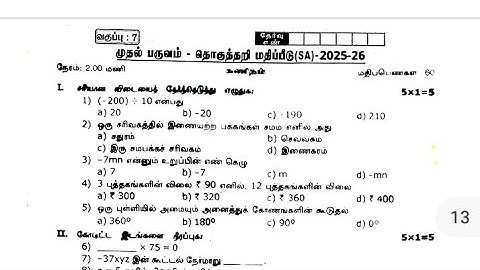 வகுப்பு : 7
தேர்வு எண்
முதல் பருவம் - தொகுத்தறி மதிப்பீடு(SA)-2025-26
நேரம்: 2.00 மணி கணிதம் மதிப்பெண்கள் 60
I. சரியான விடையைத் தேர்ந்தெடுத்து எழுதுக: 5x1=5
1) (-200) ÷ 10 என்பது
a) 20 b) -20 c) -190 d) 210
2) ஒரு சரிவகத்தில் இணையற்ற பக்கங்கள் சமம் எனில் அது
a) சதுரம் b) செவ்வகம்
c) இரு சமபக்கச் சரிவகம் d) இணைகரம்
3) -7mn என்னும் உறுப்பின் எண் கெழு
a) 7 b) -7 c) m d) -mn
4) 3 புத்தகங்களின் விலை ₹ 90 எனில், 12 புத்தகங்களின் விலை
a) ₹ 300 b) ₹ 320 c) ₹ 360 d) ₹ 400
5) ஒரு புள்ளியில் அமையும் அனைத்துக் கோணங்களின் கூடுதல்
a) 360° b) 180° c) 90° d) 0°
II. கோடிட்ட இடங்களை நிரப்புக: 5x1=5
6) ______ × 75 = 0
7) -37xyz இன் கூட்டல் நேர்மாறு ______
13